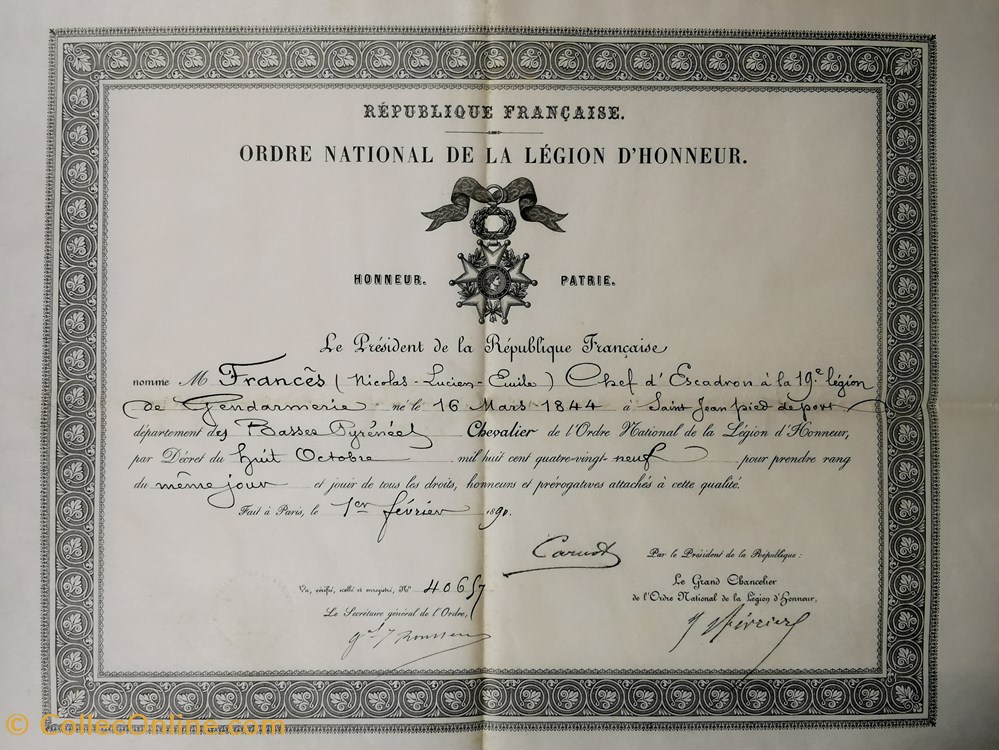 RÉPUBLIQUE FRANÇAISE.
ORDRE NATIONAL DE LA LÉGION D'HONNEUR.
HONNEUR. PATRIE.
Le Président de la République Française
nomme M Francès (Nicolas-Lucien-Emile) Chef d'Escadron à la 19e légion
de Gendarmerie né le 16 Mars 1844 à Saint Jean pied de port
département des Basses Pyrénées Chevalier de l'Ordre National de la Légion d'Honneur,
par Décret du huit Octobre mil huit cent quatre-vingt-neuf pour prendre rang
du même jour et jouir de tous les droits, honneurs et prérogatives attachés à cette qualité.
Fait à Paris, le 1er février 1890.
Carnot
Par le Président de la République:
Le Grand Chancelier
de l'Ordre National de la Légion d'Honneur,
Vu, vérifié, scellé et enregistré, No 40657
Le Secrétaire général de l'Ordre,
gal Rousseau
Février
© CollecOnline.com